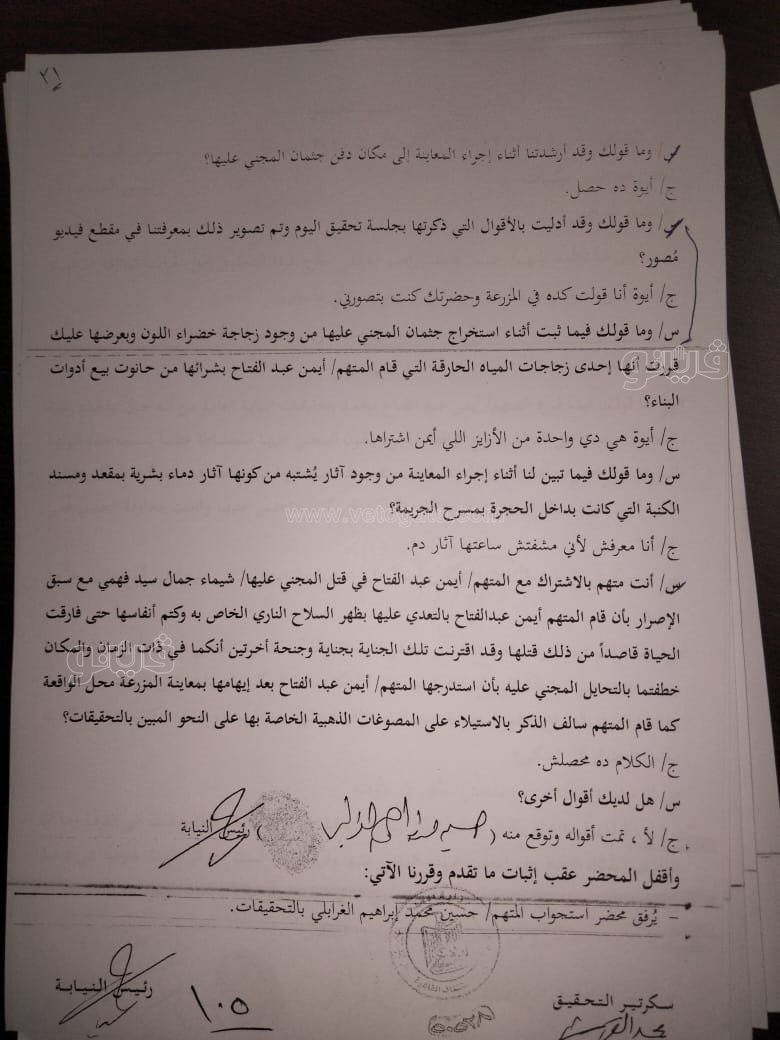 ٣١
س/ وما قولك وقد أرشدتنا أثناء إجراء المعاينة إلى مكان دفن جثمان المجني عليها؟
ج/ أيوة ده حصل.
س/ وما قولك وقد أدليت بالأقوال التي ذكرتها بجلسة تحقيق اليوم وتم تصوير ذلك بمعرفتنا في مقطع فيديو
مُصور؟
ج/ أيوة أنا قولت كده في المزرعة وحضرتك كنت بتصورني.
س/ وما قولك فيما ثبت أثناء استخراج جثمان المجني عليها من وجود زجاجة خضراء اللون وبعرضها عليك
قررت أنها إحدى زجاجات المياه الحارقة التي قام المتهم/ أيمن عبد الفتاح بشرائها من حانوت بيع أدوات
البناء؟
ج/ أيوة هي دي واحدة من الأزايز اللي أيمن اشتراها.
س/ وما قولك فيما تبين لنا أثناء إجراء المعاينة من وجود آثار يُشتبه من كونها آثار دماء بشرية بمقعد ومسند
الكنبة التي كانت بداخل الحجرة بمسرح الجريمة؟
ج/ أنا معرفش لأني مشفتش ساعتها آثار دم.
س/ أنت متهم بالاشتراك مع المتهم/ أيمن عبد الفتاح في قتل المجني عليها/ شيماء جمال سيد فهمي مع سبق
الإصرار بأن قام المتهم أيمن عبدالفتاح بالتعدي عليها بظهر السلاح الناري الخاص به وكتم أنفاسها حتى فارقت
الحياة قاصداً من ذلك قتلها وقد اقترنت تلك الجناية بجناية وجنحة أخرتين أنكما في ذات الزمان والمكان
خطفتما بالتحايل المجني عليه بأن استدرجها المتهم/ أيمن عبد الفتاح بعد إيهامها بمعاينة المزرعة محل الواقعة
كما قام المتهم سالف الذكر بالاستيلاء على المصوغات الذهبية الخاصة بها على النحو المبين بالتحقيقات؟
ج/ الكلام ده محصلش.
س/ هل لديك أقوال أخرى؟
ج/ لأ ، تمت أقواله وتوقع منه ( ) رئيس النيابة
وأقفل المحضر عقب إثبات ما تقدم وقررنا الآتي:
- يُرفق محضر استجواب المتهم/ حسين محمد إبراهيم الغرابلي بالتحقيقات.
سكرتير التحقيق رئيس النيابة
١٠٥
فيتو
www.vetogate.com
فيتو